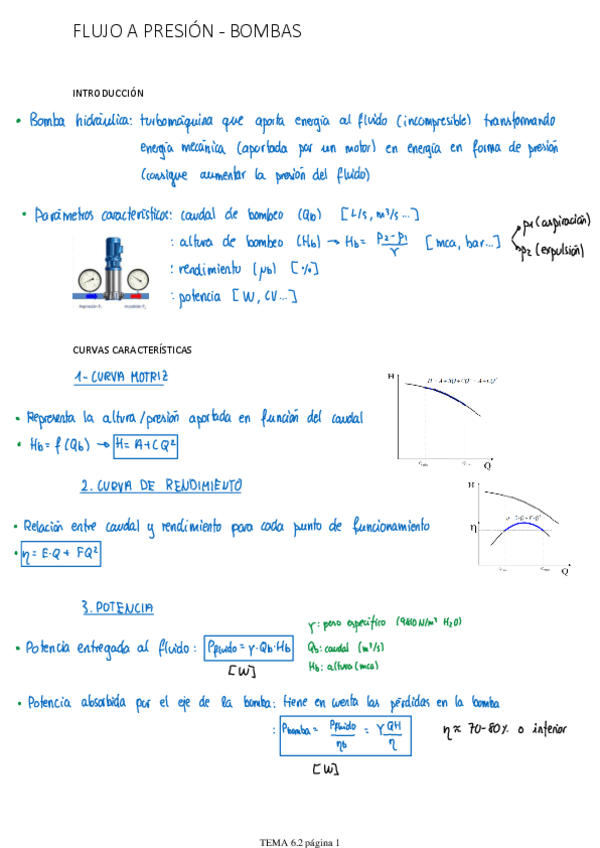 FLUJO A PRESIÓN - BOMBAS
INTRODUCCIÓN
• Bomba hidráulica: turbomáquina que aporta energía al fluido (incompresible) transformando
energía mecánica (aportada por un motor) en energía en forma de presión
(consigue aumentar la presión del fluido)
• Parámetros característicos: caudal de bombeo (Qb) [L/s, m³/s...]
: altura de bombeo (Hb) → Hb = (p2-p1)/γ [mca, bar...] p1 (aspiración)
p2 (expulsión)
: rendimiento (μb) [%]
: potencia [W, CV...]
CURVAS CARACTERÍSTICAS
1- CURVA MOTRIZ
H
• Representa la altura/presión aportada en función del caudal
• Hb = f(Qb) → H = A+CQ²
Q
2. CURVA DE RENDIMIENTO
H
• Relación entre caudal y rendimiento para cada punto de funcionamiento
η
• η = E·Q + FQ²
Q
3. POTENCIA
γ: peso específico (9810 N/m³ H2O)
• Potencia entregada al fluido: Pfluido = γ·Qb·Hb
Qb: caudal (m³/s)
Hb: altura (mca)
[W]
• Potencia absorbida por el eje de la bomba: tiene en cuenta las pérdidas en la bomba
: Pbomba = Pfluido/ηb = γQH/η
η ≈ 70-80% o inferior
[W]
TEMA 6.2 página 1